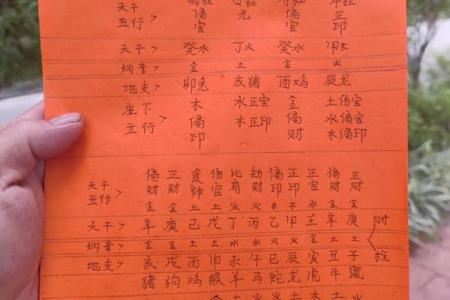 天干 五行> 偏官 元 偏官 正印
天干> 癸水 丁火 癸水 甲木
纳音> 金 土 金 火
地支> 卯兔 亥猪 酉鸡 辰龙
座下 五行> 木 水正官 金 土伤官
偏印 木正印 偏财 水偏官
木偏印
偏 正 食 伤 比 劫 偏 正 正 偏 正
天干 五行> 财 财 神 官 肩 财 印 印 官 财 财
金 金 土 土 火 火 木 木 土 金 金
天干> 辛 庚 己 戊 丁 丙 乙 甲 壬 辛 庚 时
纳音> 金 金 土 土 水 水 火 火 金 土 土
地支> 亥 戌 酉 申 未 午 巳 辰 寅 丑 子 柱
猪 狗 鸡 猴 羊 马 蛇 龙 虎 斗